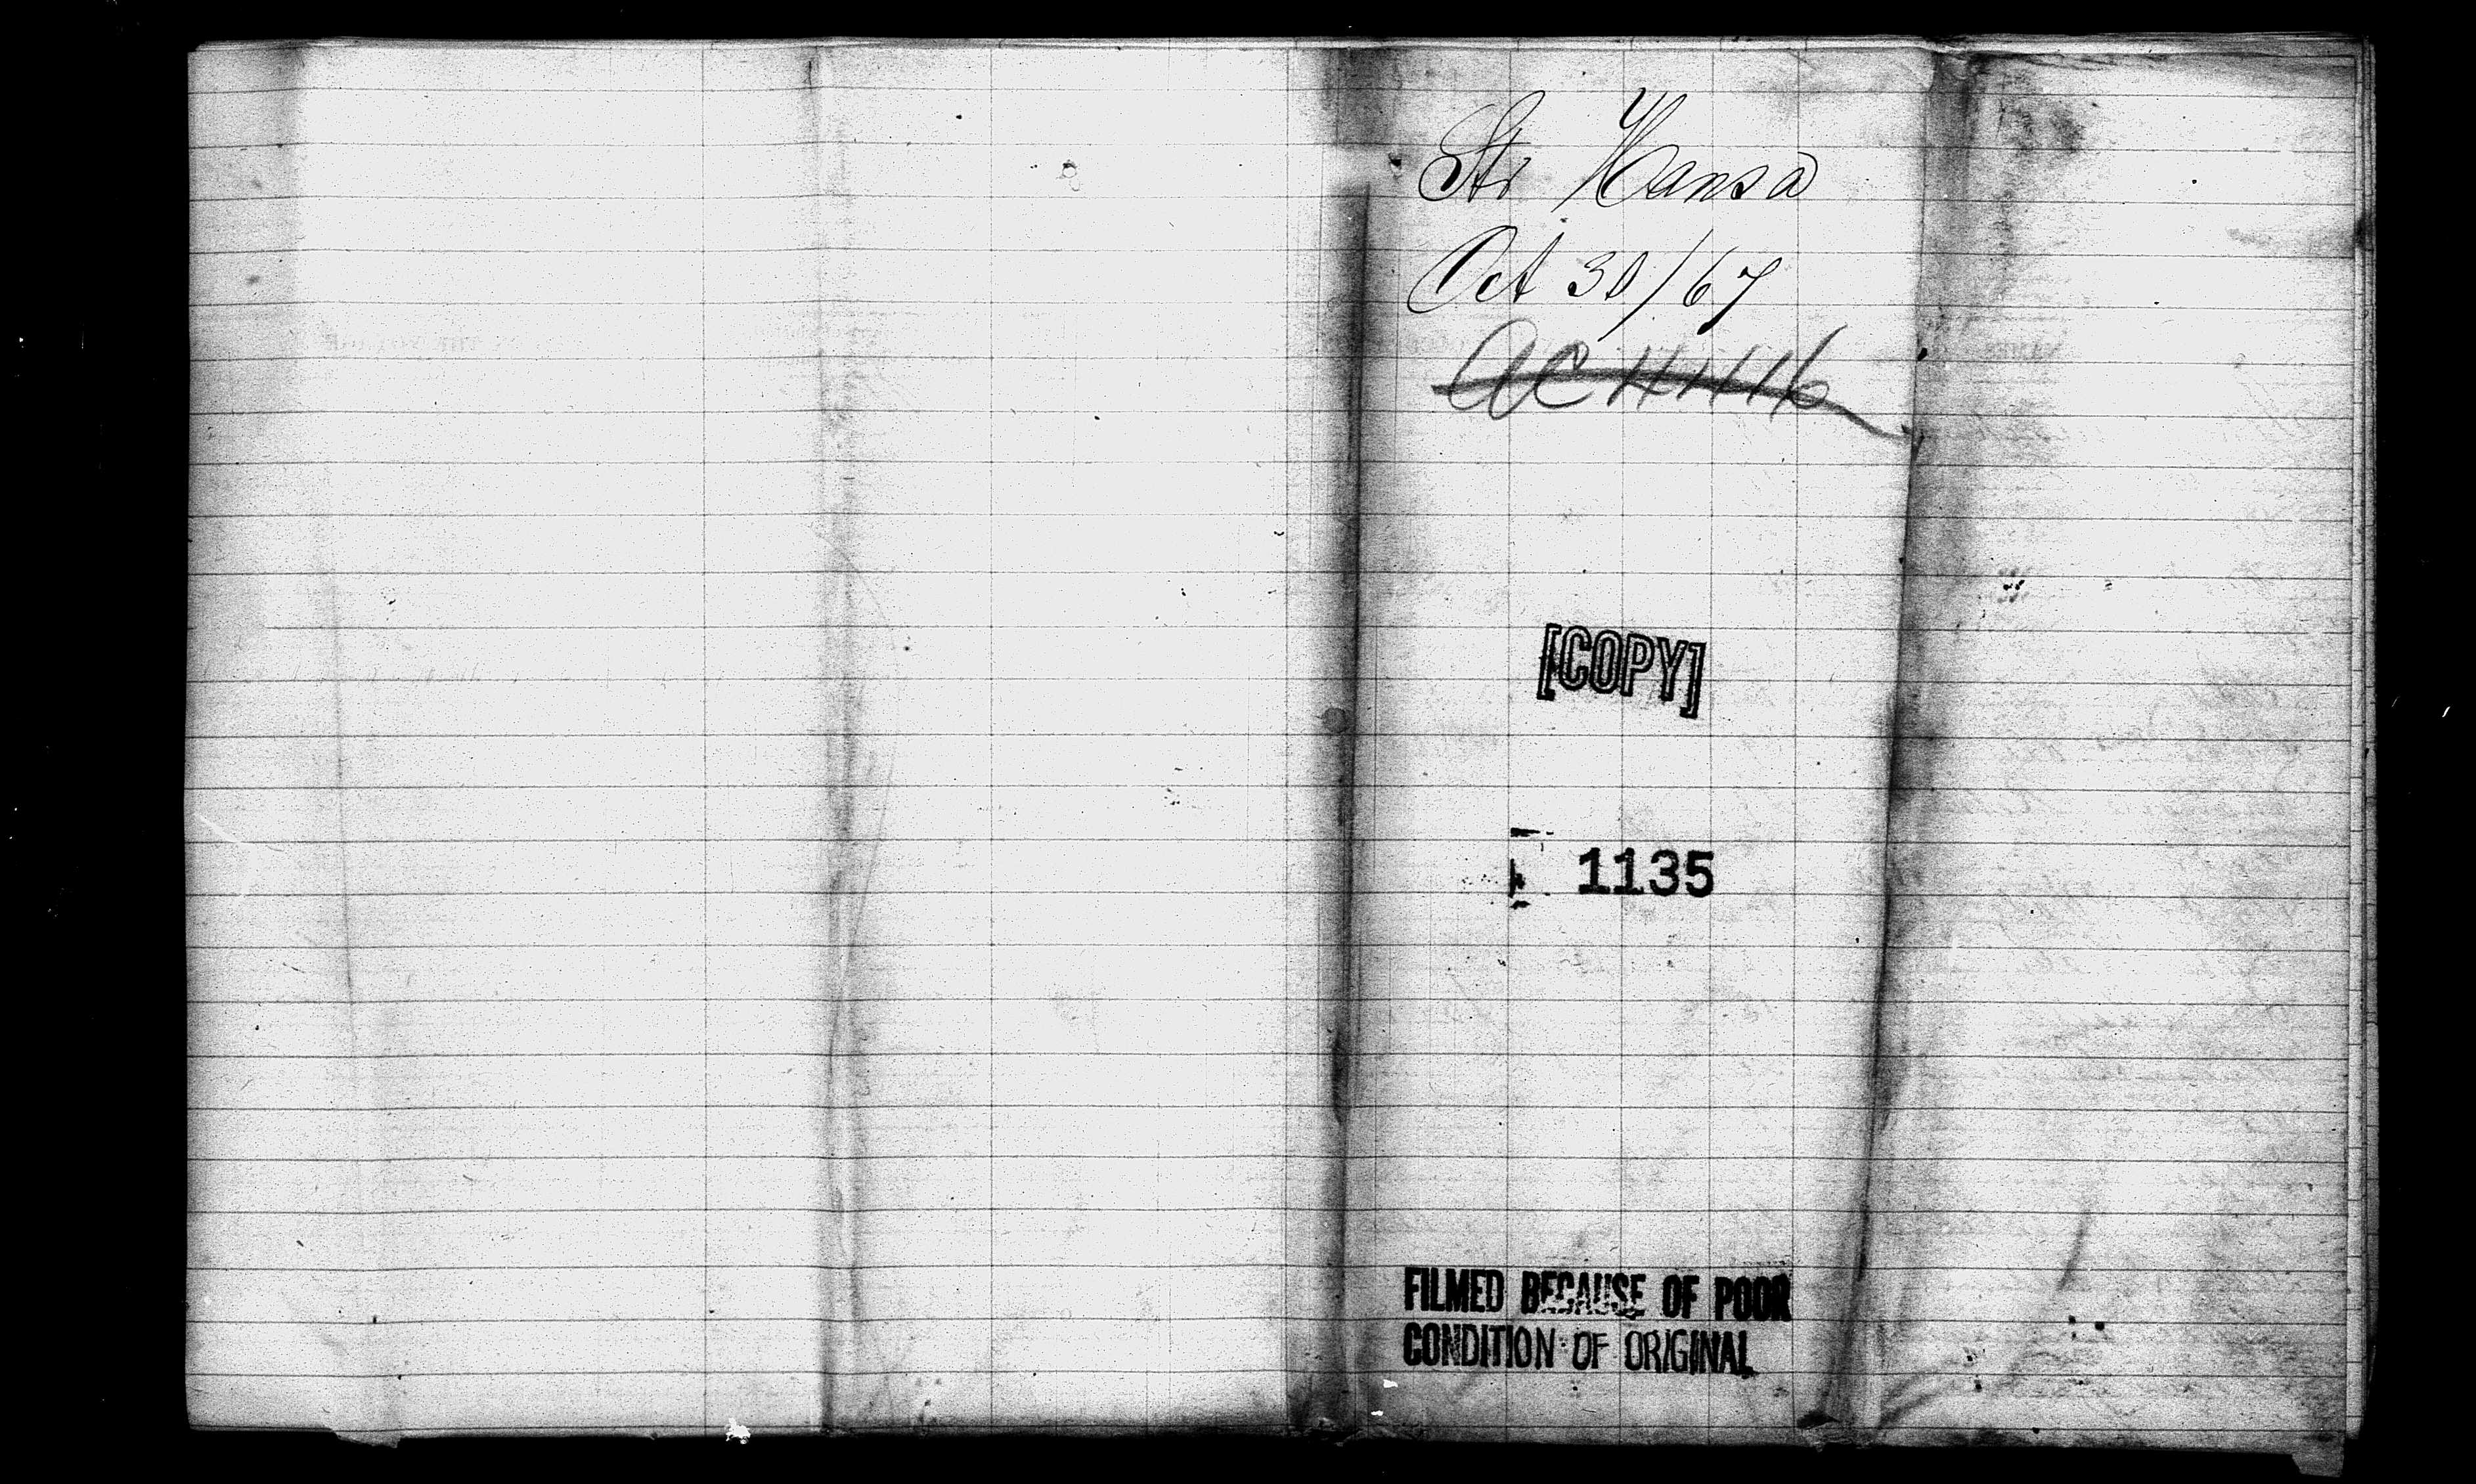 Str Hansa
Oct 30/67
[COPY]
1135
FILMED BECAUSE OF POOR
CONDITION OF ORIGINAL